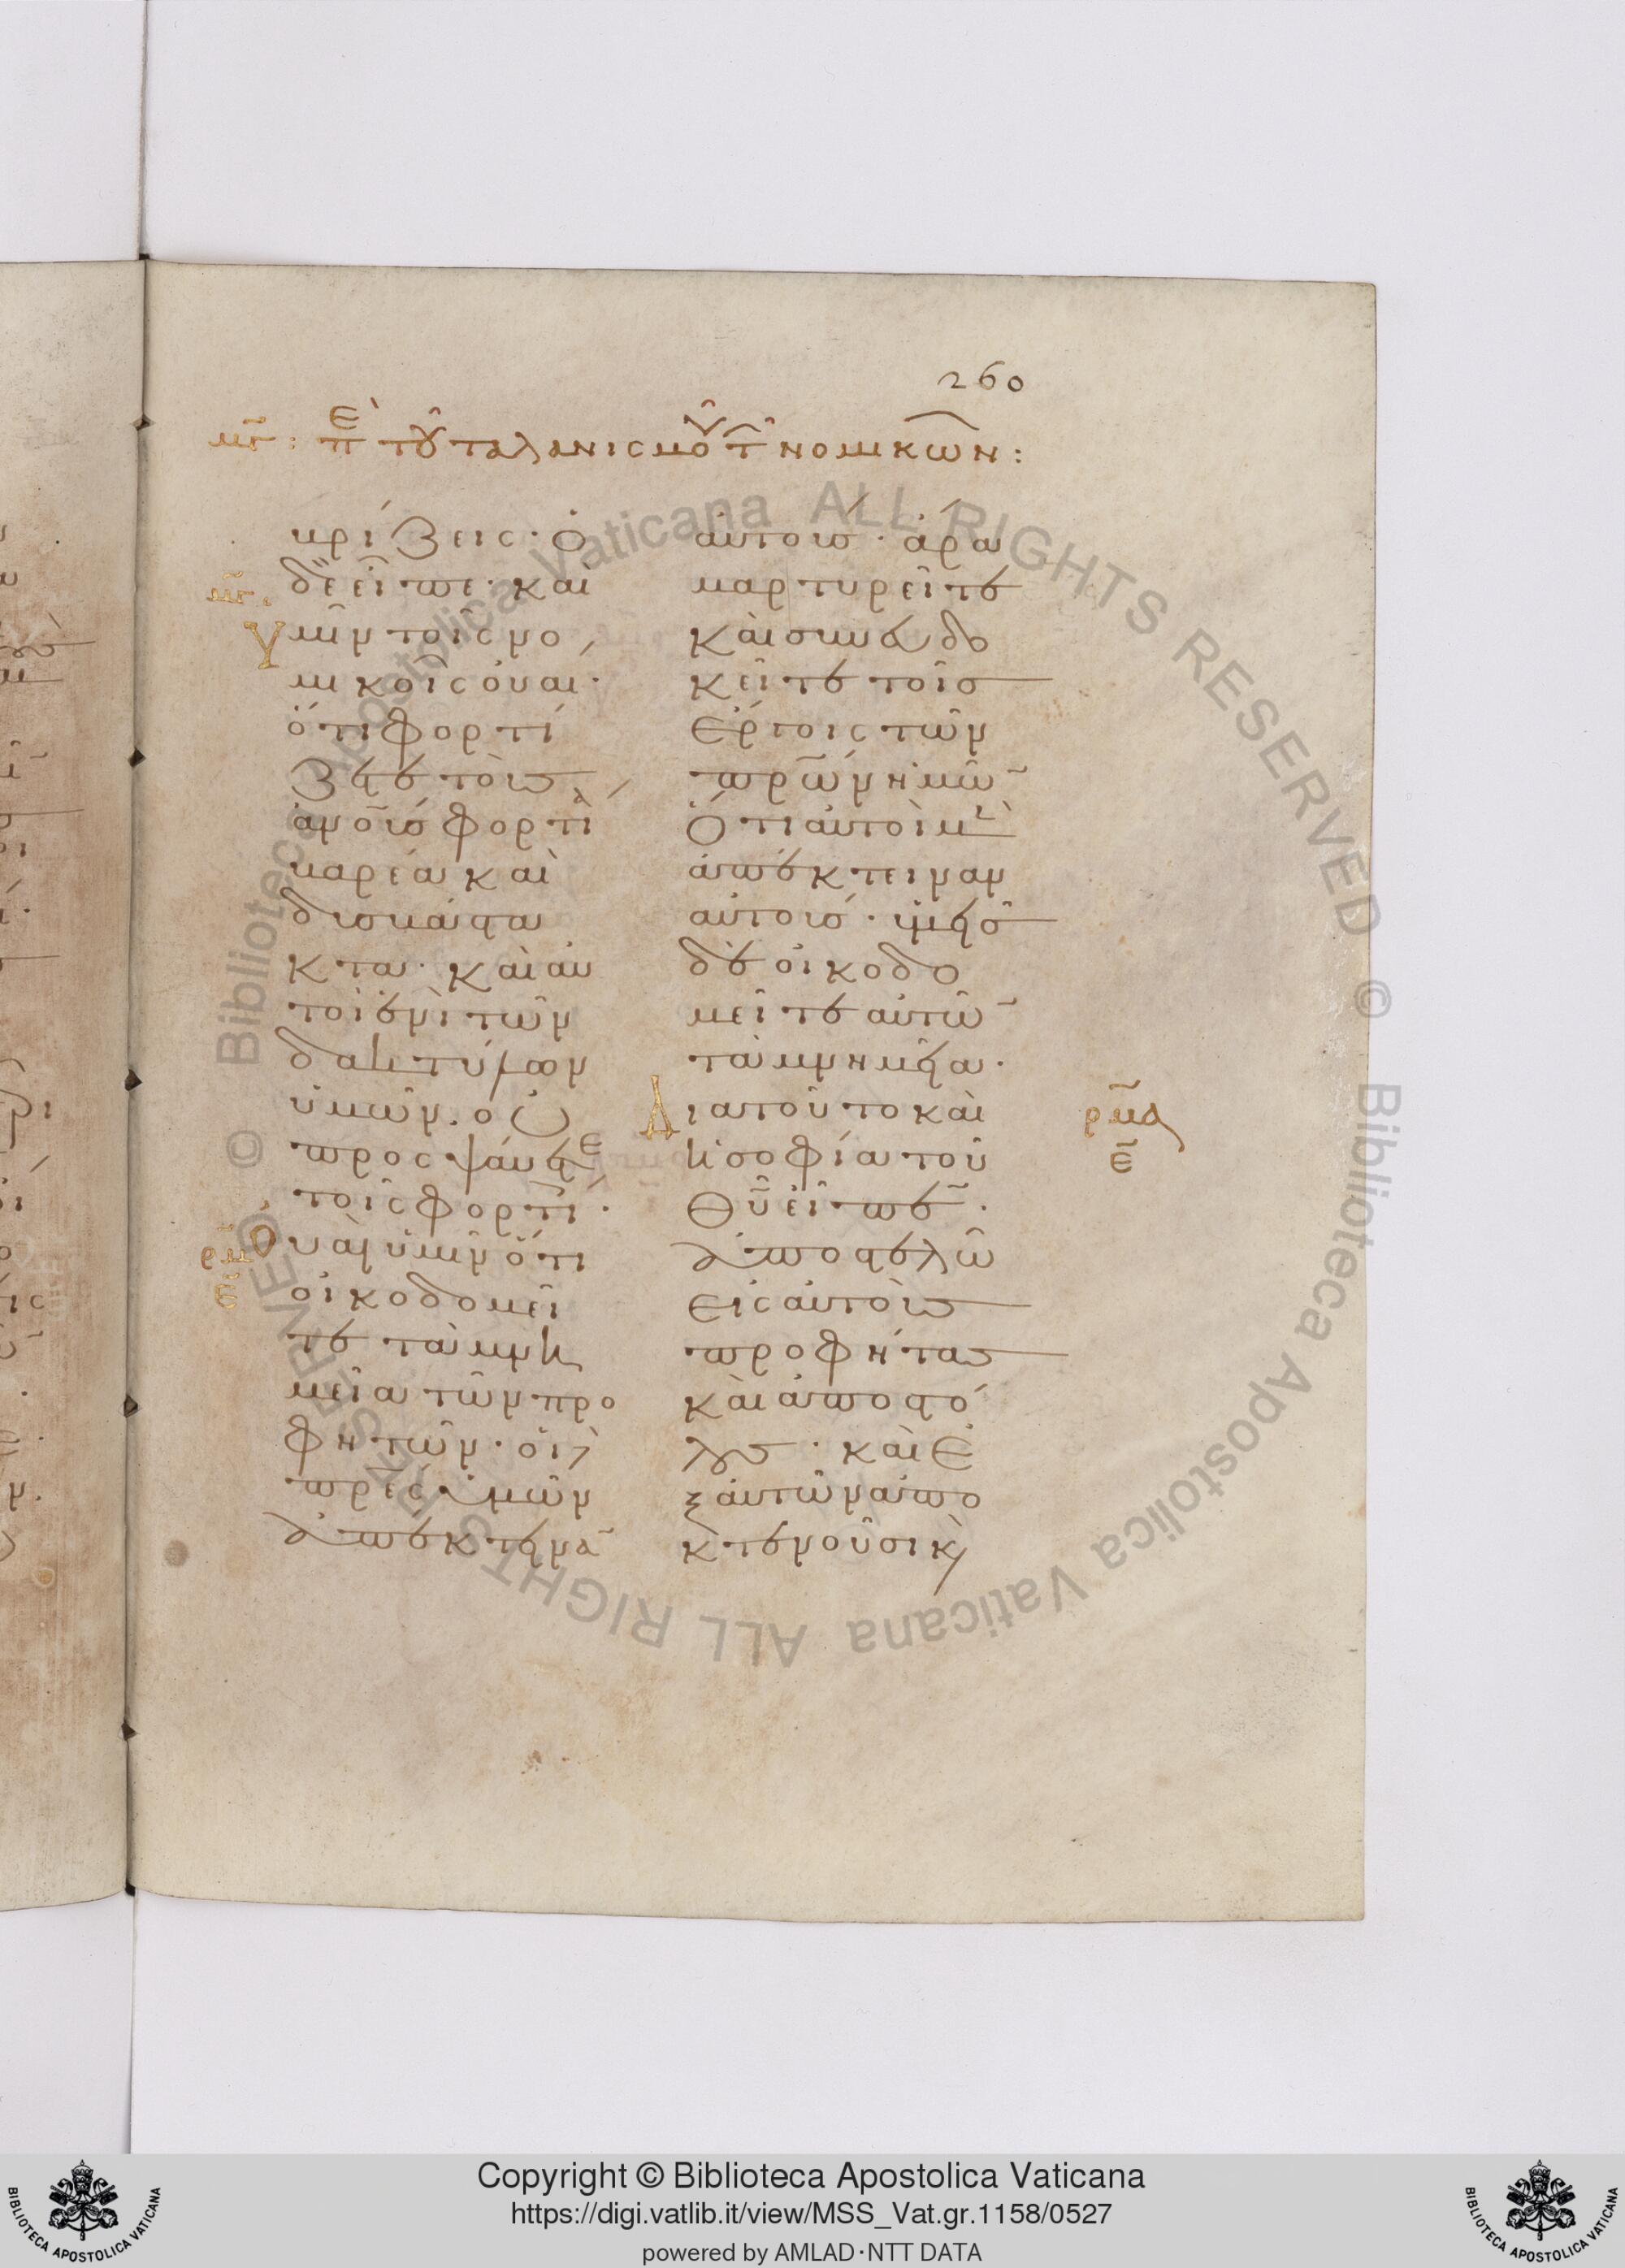 260
μγ: π̅ε τοῦ ταλανισμοῦ τ̅ νομικῶν:
ὑβρίζεις· ὁ
δὲ εἶπε· καὶ
ὑμῖν τοῖς νο
μικοῖς οὐαί·
ὅτι φορτί
ζετε τοὺς
ἀνο̅υς φορτία
βαρέα καὶ
δυσβάστα
κτα· καὶ αὐ
τοὶ ἑνὶ τῶν
δακτύλων
ὑμῶν. οὐ
προσψαύετε
τοῖς φορτί·
Οὐαὶ ὑμῖν ὅτι
οἰκοδομεῖ
τε τὰ μνη
μεῖα τῶν προ
φητῶν· οἱ δὲ
πρ̅ες ὑμῶν
ἀπέκτεινα̅
αὐτούς· ἄρα
μαρτυρεῖτε
καὶ συνευδο
κεῖτε τοῖς
ἔργοις τῶν
πρ̅ων ἡμῶ̅
Ὅτι αὐτοὶ μὲν
ἀπέκτειναν
αὐτούς· ὑμεῖς
δὲ οἰκοδο
μεῖτε αὐτῶ̅
τὰ μνημεῖα·
Διὰ τοῦτο καὶ
ἡ σοφία τοῦ
θ̅υ εἶπε̅·
ἀποστελῶ
εἰς αὐτοὺς
προφήτας
καὶ ἀποστό
λους· καὶ ἐ
ξ αὐτῶν ἀπο
κτενοῦσι κ̀
μγ.
ρμ
ε
ρμα
ε
Copyright © Biblioteca Apostolica Vaticana
https://digi.vatlib.it/view/MSS_Vat.gr.1158/0527
powered by AMLAD·NTT DATA
BIBLIOTECA APOSTOLICA VATICANA
BIBLIOTECA APOSTOLICA VATICANA
© Biblioteca Apostolica Vaticana ALL RIGHTS RESERVED
© Biblioteca Apostolica Vaticana ALL RIGHTS RESERVED